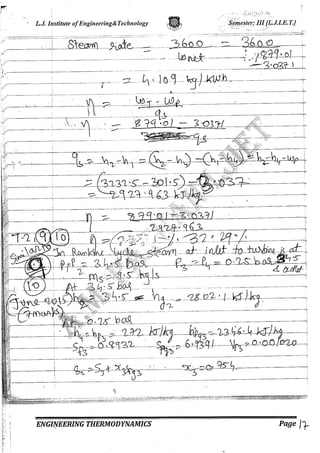 L.J. Institute of Engineering&Technology Semester: III [L.J.I.E.T.]
Steam rate = 3600 / ωnet = 3600 / 879.01 - 3.0371
= 4.109 kg/kWh.
η = ωT - ωP / qs
∴ η = 879.01 - 3.0371 / qs
qs = h2-h1 = (h2-h4) - (h1-h4) = h2-h4-ωp
= (3232.5 - 301.5) - 3.037
= 2927.963 kJ/kg
η = 879.01 - 3.0371 / 2927.963
T-2, 9 10 η = 32.29 %
9 In Rankine cycle, steam at inlet to turbine is at
P2 = 34.5 bar P3 = P4 = 0.25 bar
10 ms = 9.5 kg/s
At 34.5 bar
(June 2015) h2 = hg2 = 2802.1 kJ/kg
(7 marks) 0.25 bar
h4 = hf3 = 272 kJ/kg hfg3 = 2346.4 kJ/kg
Sf3 = 0.8932 Sfg3 = 6.9391 Vf3 = 0.001020
S2 = S3 + x3Sfg3 x3 = 0.754
ENGINEERING THERMODYNAMICS Page